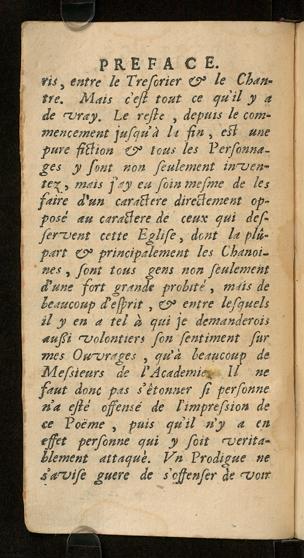 PREFACE.
ris, entre le Tresorier & le Chan-
tre. Mais c'est tout ce qu'il y a
de vray. Le reste, depuis le com-
mencement jusqu'à la fin, est une
pure fiction & tous les Personna-
ges y sont non seulement inven-
tez, mais j'ay eu soin mesme de les
faire d'un caractere directement op-
posé au caractere de ceux qui des-
servent cette Eglise, dont la plû-
part & principalement les Chanoi-
nes, sont tous gens non seulement
d'une fort grande probité, mais de
beaucoup d'esprit, & entre lesquels
il y en a tel à qui je demanderois
aussi volontiers son sentiment sur
mes Ouvrages, qu'à beaucoup de
Messieurs de l'Academie. Il ne
faut donc pas s'étonner si personne
n'a esté offensé de l'impression de
ce Poëme, puis qu'il n'y a en
effet personne qui y soit verita-
blement attaqué. Vn Prodigue ne
s'avise guere de s'offenser de voir